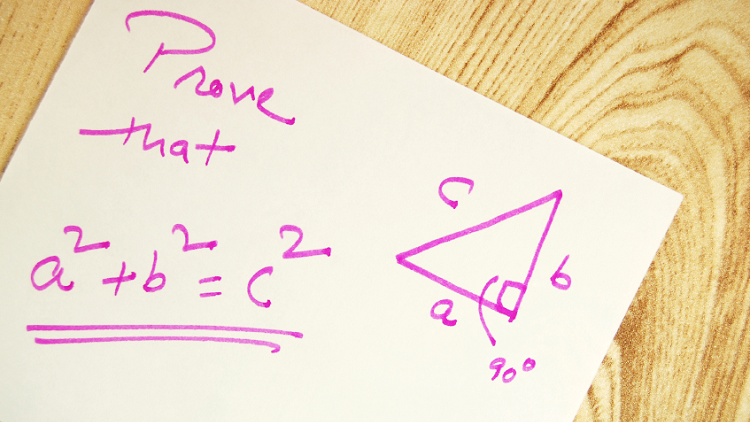 Prove
that
a² + b² = c²
c
b
a
90°